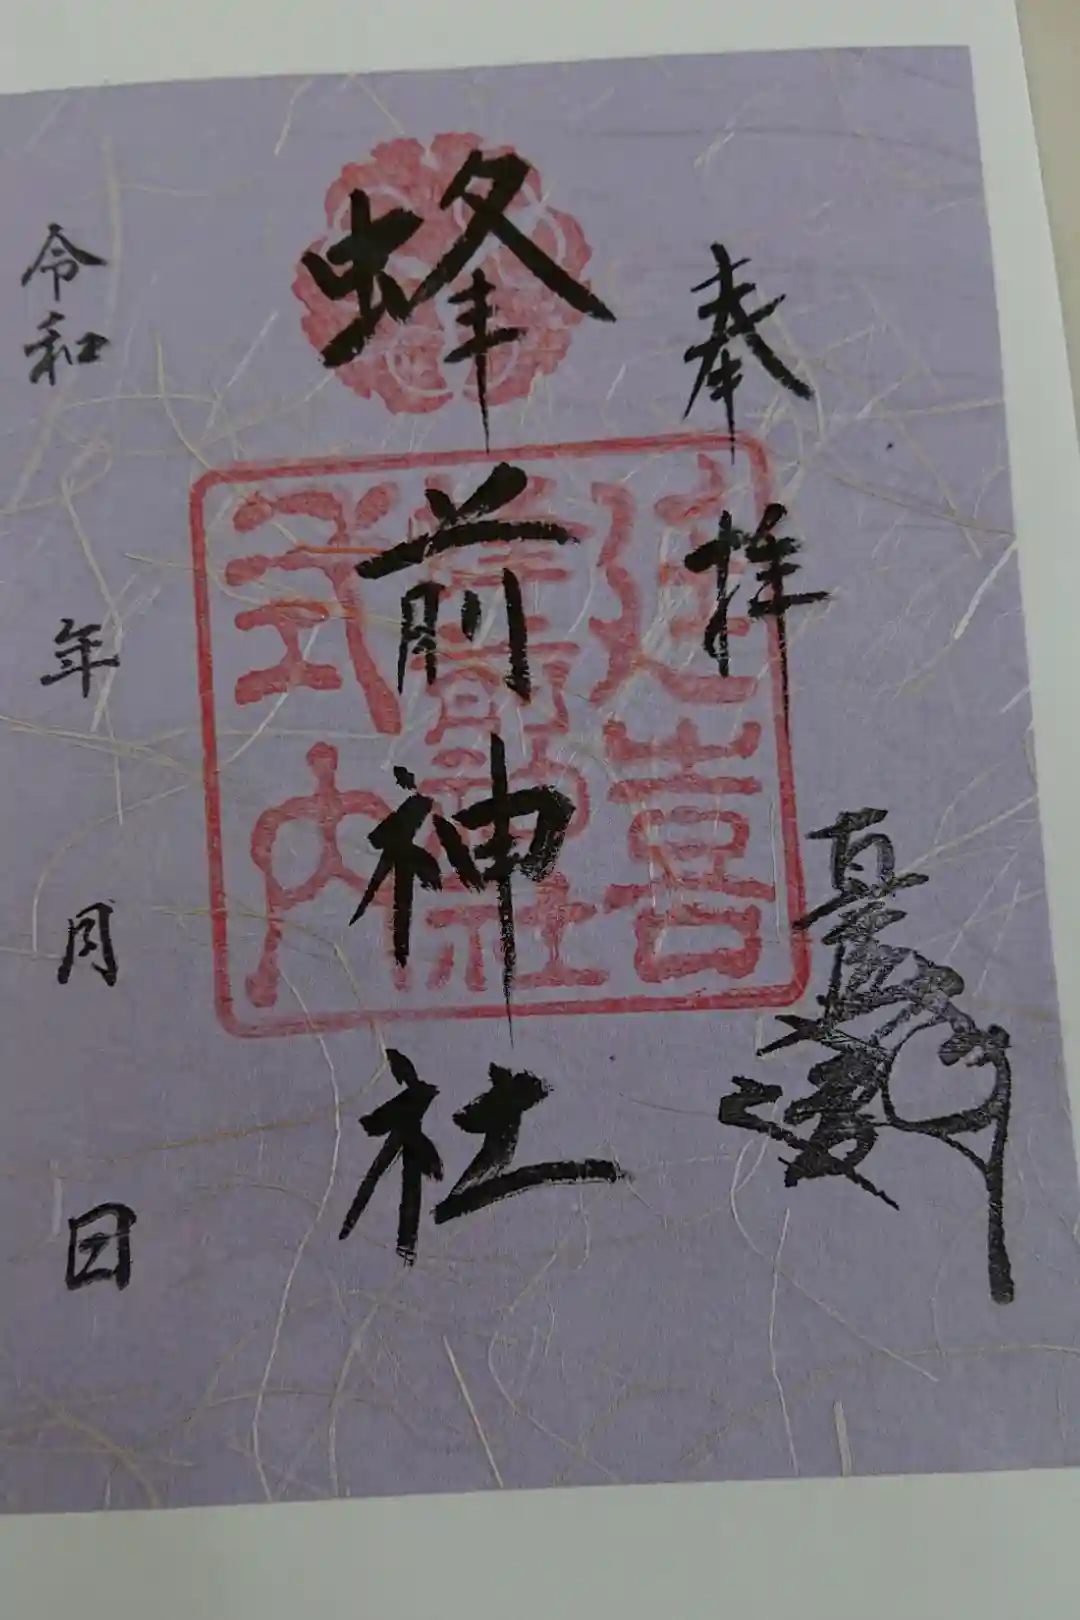 奉拝
蜂前神社
延喜
蜂前神社
式内
令和 年 月 日